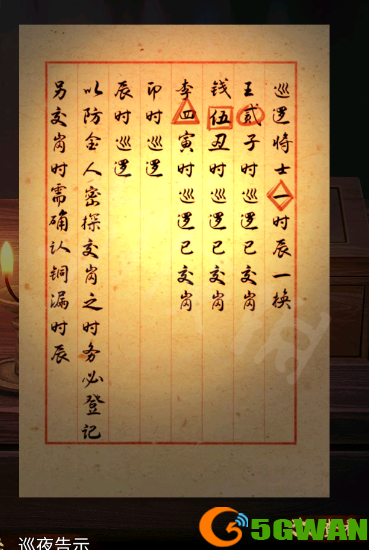 巡逻将士一时辰一换
王贰子时巡逻已交岗
钱伍丑时巡逻已交岗
李四寅时巡逻已交岗
卯时巡逻
辰时巡逻
以防金人密探交岗之时务必登记
另交岗时需确认铜漏时辰
巡夜告示
5GWAN